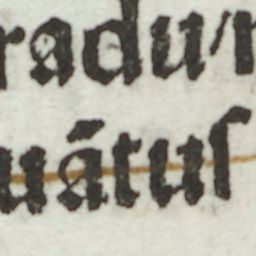 radu/
uãtuſ